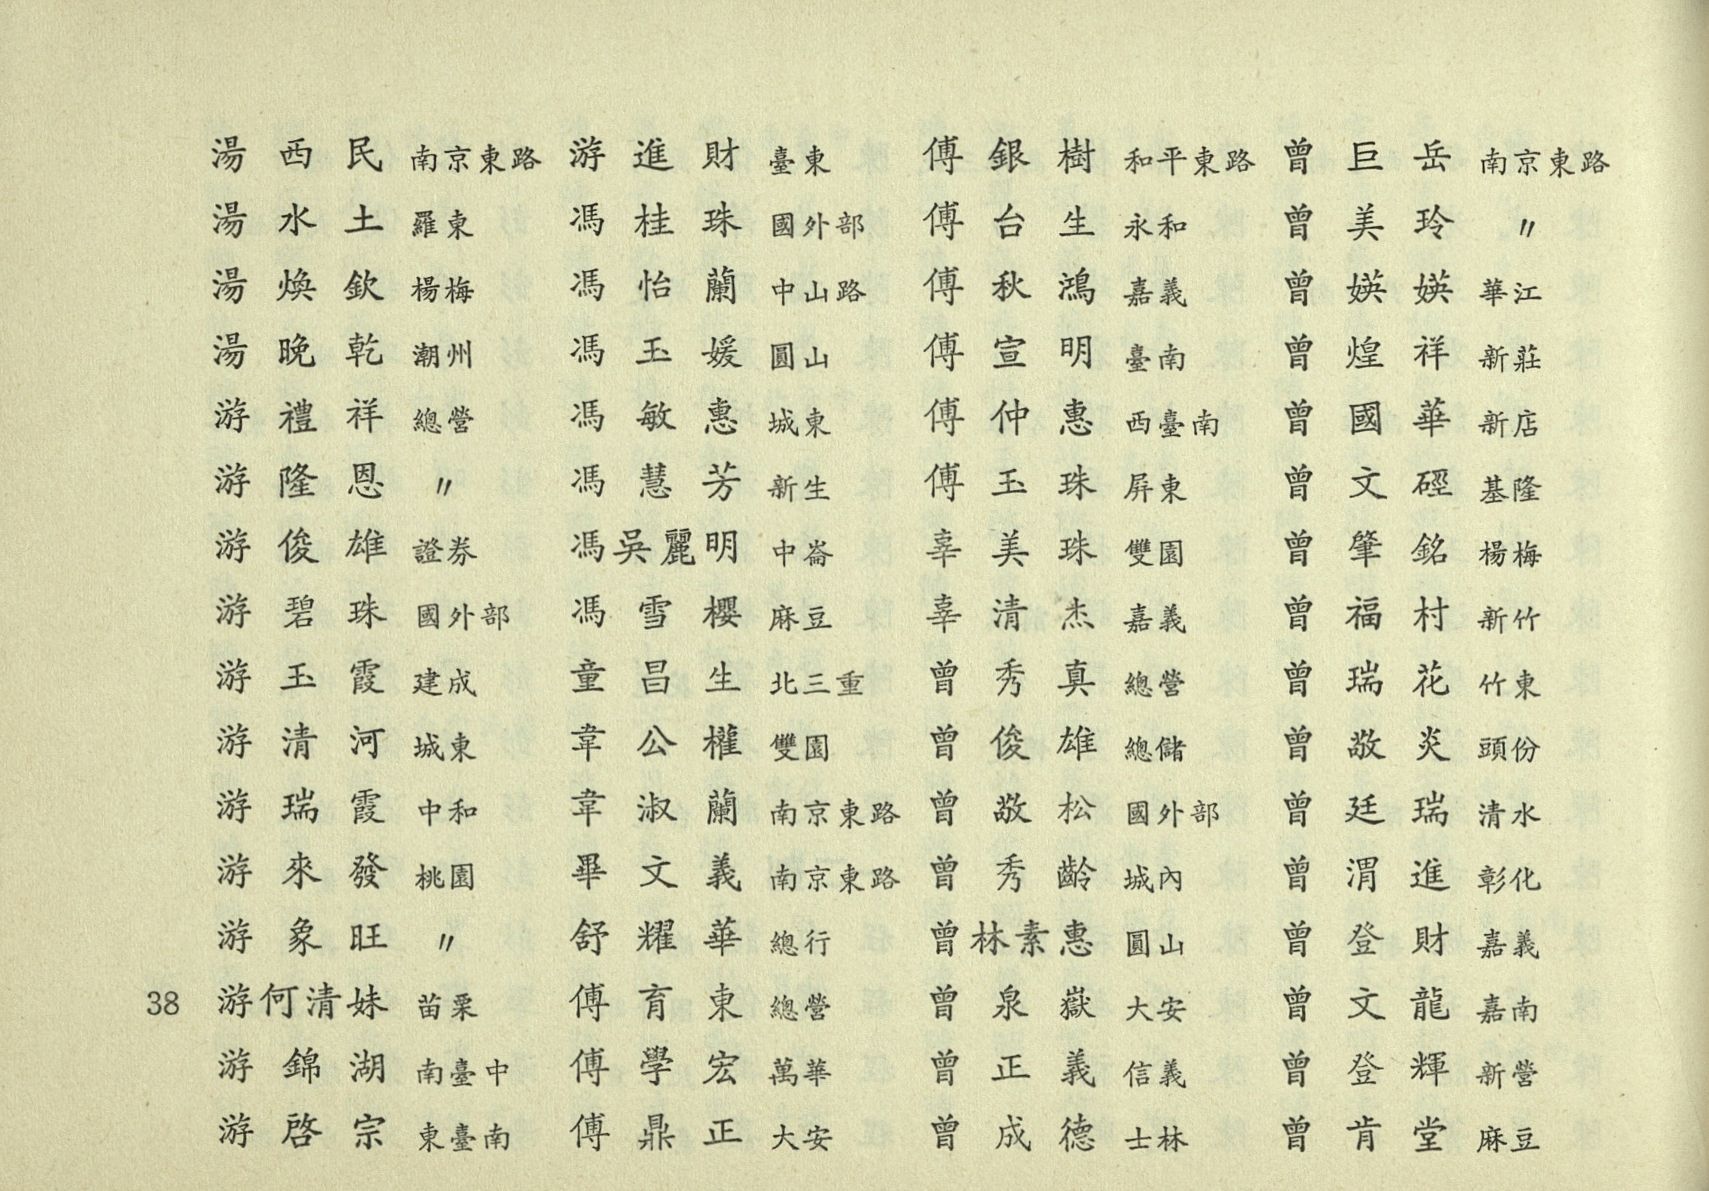 湯西民 南京東路
湯水土 羅東
湯煥欽 楊梅
湯晚乾 潮州
游禮祥 總營
游隆恩 〃
游俊雄 證券
游碧珠 國外部
游玉霞 建成
游清河 城東
游瑞霞 中和
游來發 桃園
游象旺 〃
游何清妹 苗栗
游錦湖 南臺中
游啓宗 東臺南
游進財 臺東
馮桂珠 國外部
馮怡蘭 中山路
馮玉媛 圓山
馮敏惠 城東
馮慧芳 新生
馮吳麗明 中崙
馮雪櫻 麻豆
童昌生 北三重
韋公權 雙園
韋淑蘭 南京東路
畢文義 南京東路
舒耀華 總行
傅育東 總營
傅學宏 萬華
傅鼎正 大安
傅銀樹 和平東路
傅台生 永和
傅秋鴻 嘉義
傅宣明 臺南
傅仲惠 西臺南
傅玉珠 屏東
辜美珠 雙園
辜清杰 嘉義
曾秀真 總營
曾俊雄 總儲
曾敬松 國外部
曾秀齡 城內
曾林素惠 圓山
曾泉嶽 大安
曾正義 信義
曾成德 士林
曾巨岳 南京東路
曾美玲 〃
曾媖媖 華江
曾煌祥 新莊
曾國華 新店
曾文硜 基隆
曾肇銘 楊梅
曾福村 新竹
曾瑞花 竹東
曾敬炎 頭份
曾廷瑞 清水
曾渭進 彰化
曾登財 嘉義
曾文龍 嘉南
曾登輝 新營
曾肯堂 麻豆
38